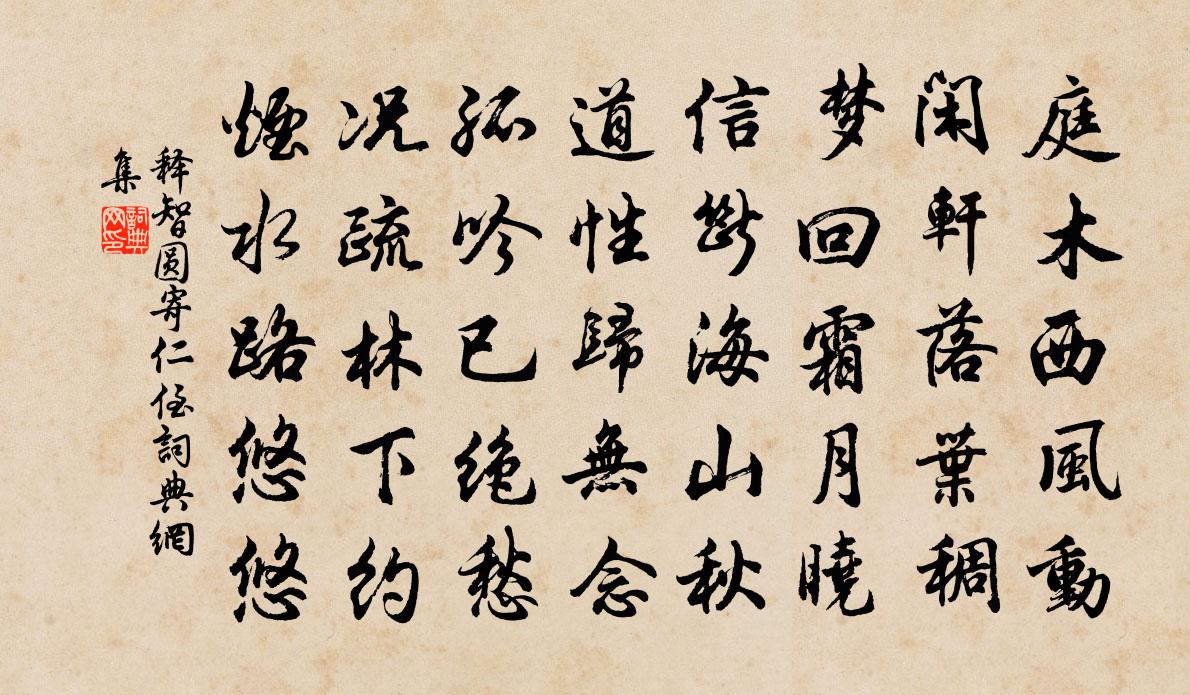 庭木西風動
閑軒落葉稠
梦回霜月曉
信斷海山秋
道性歸無念
孤吟已絶愁
况疏林下约
煙水路悠悠
释智圆寄仁侄詞典網
集
詞典网印